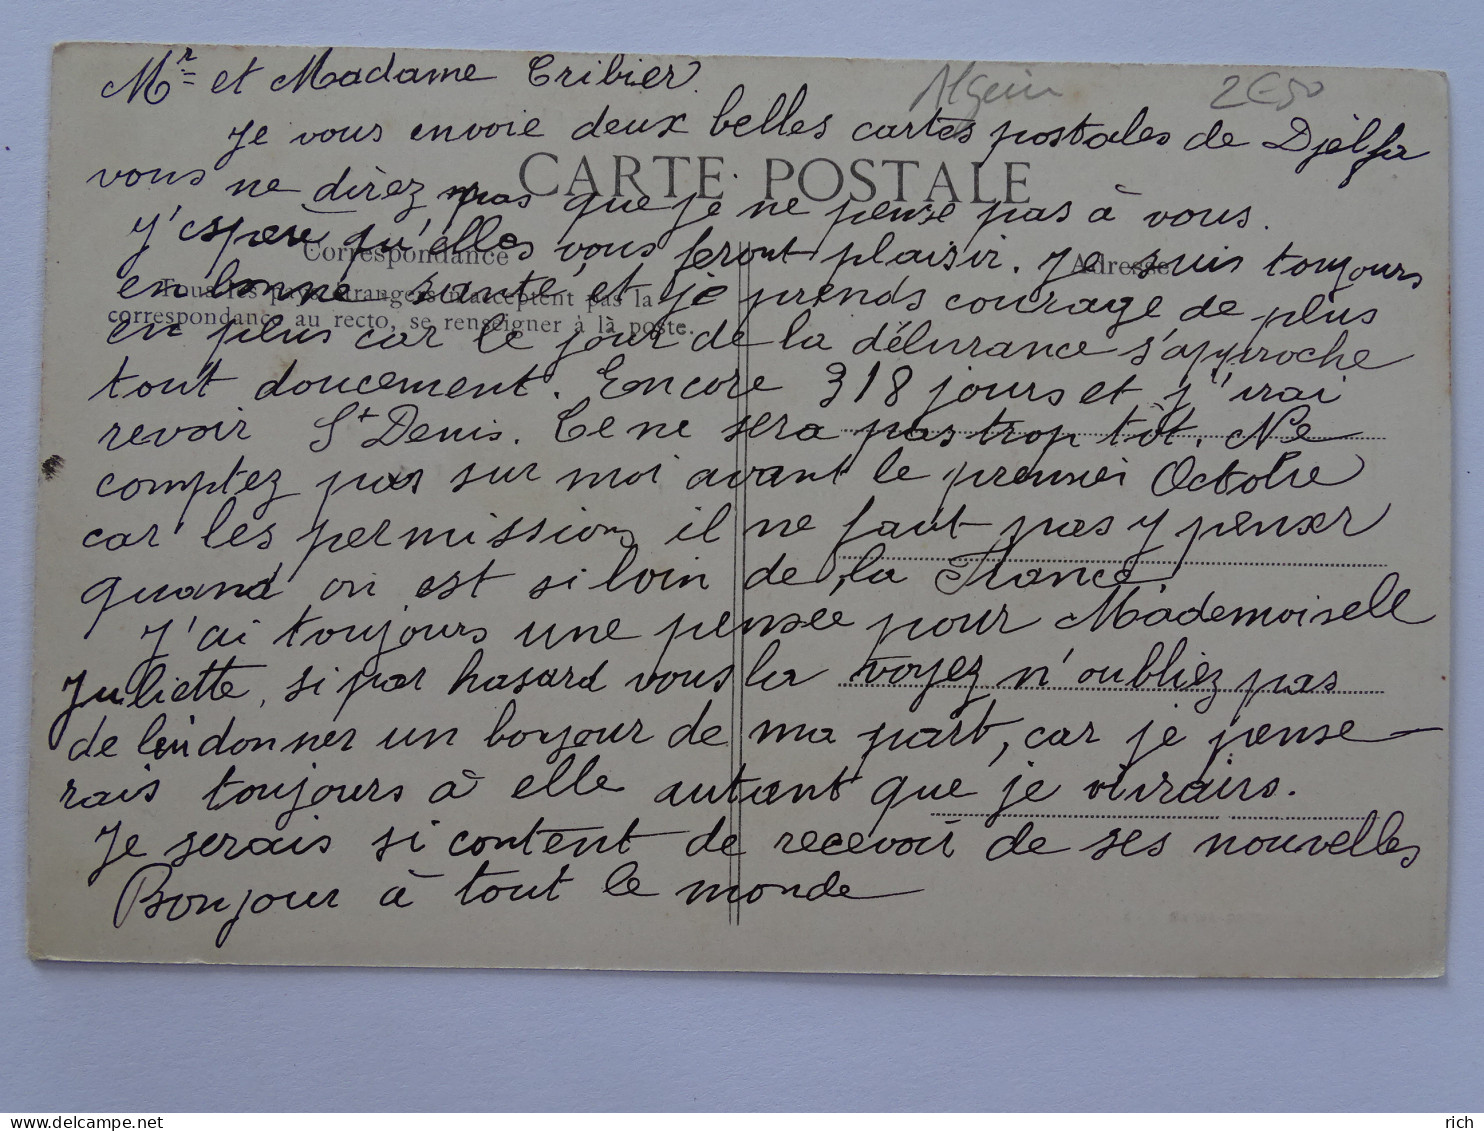 Mr et Madame Tribier.
Algérie 2€50
Je vous envoie deux belles cartes postales de Djelfa
CARTE POSTALE
vous ne direz pas que je ne pense pas à vous.
J'espère qu'elles vous feront plaisir. Je suis toujours
Correspondance
Adresse
en bonne santé et je prends courage de plus
Tous les pays étrangers n'acceptent pas la
correspondance au recto, se renseigner à là poste.
en plus car le jour de la délivrance s'approche
tout doucement. Encore 318 jours et j'irai
revoir St Denis. Ce ne sera pas trop tôt. Ne
comptez pas sur moi avant le premier Octobre
car les permissions il ne faut pas y penser
quand on est si loin de la France.
J'ai toujours une pensée pour Mademoiselle
Juliette, si par hasard vous la voyez n'oubliez pas
de lui donner un bonjour de ma part, car je pense-
rais toujours à elle autant que je vivrairs.
Je serais si content de recevoir de ses nouvelles
Bonjour à tout le monde
rich